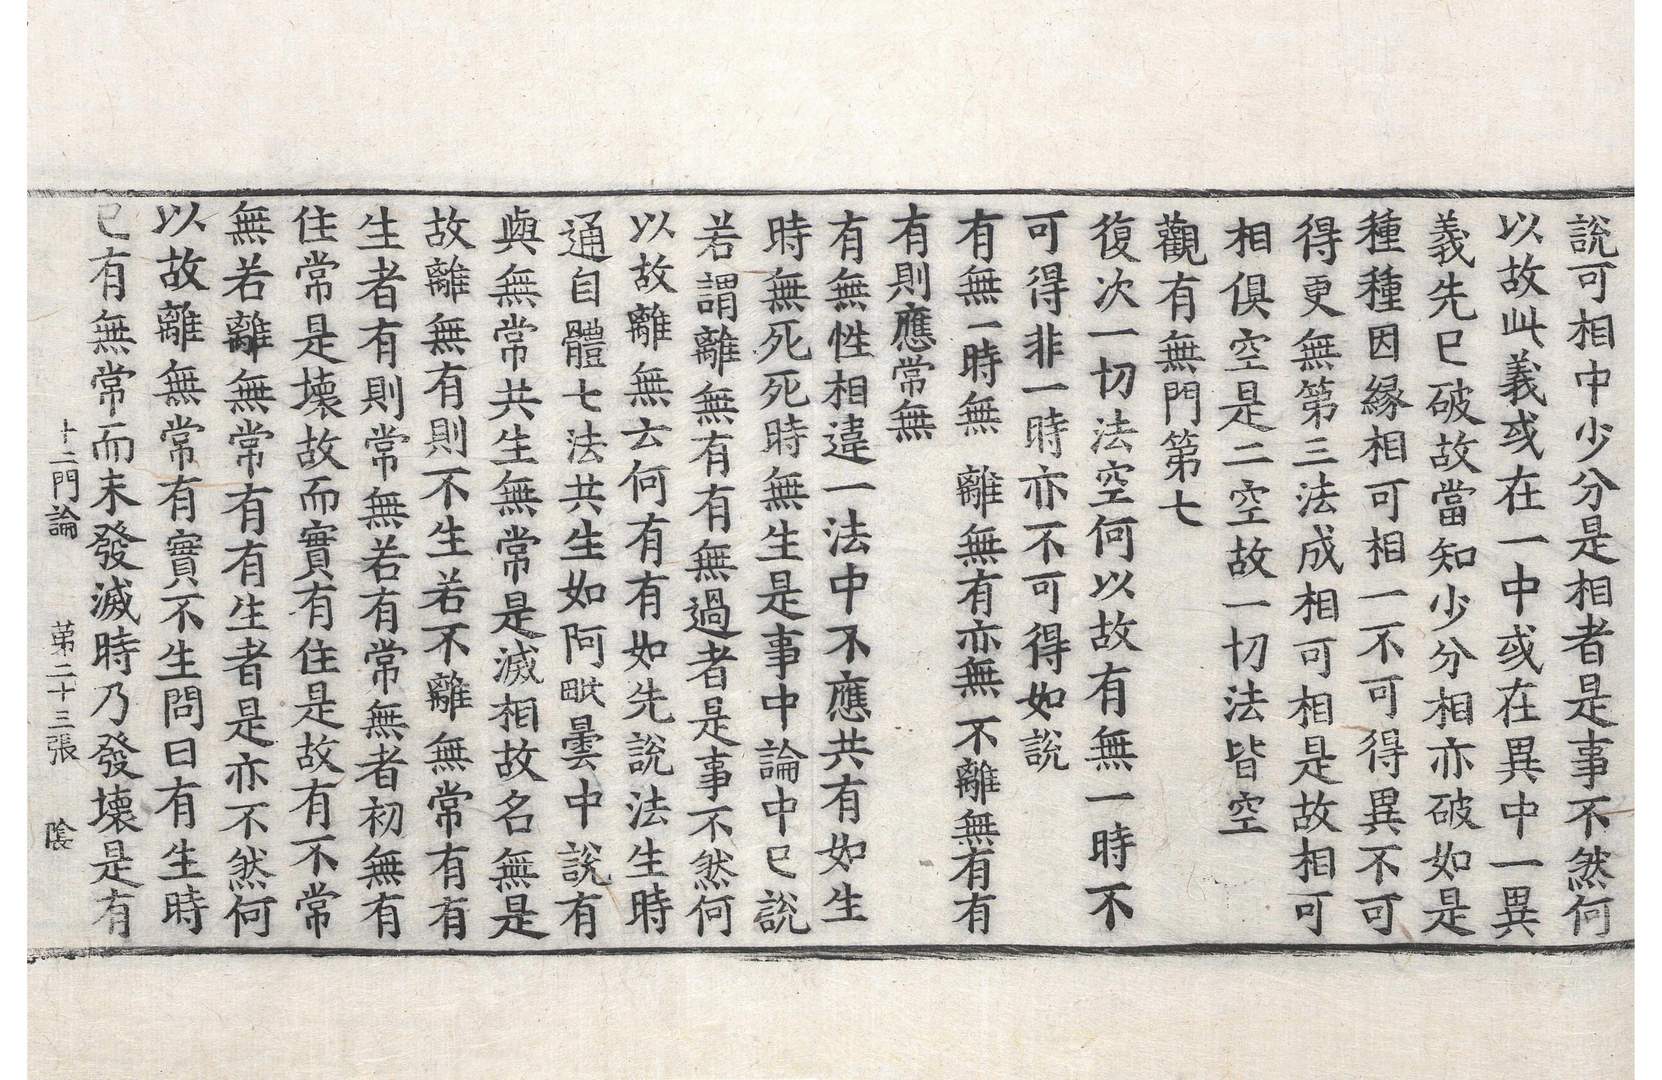 說可相中少分是相者是事不然何
以故此義或在一中或在異中一異
義先已破故當知少分相亦破如是
種種因緣相可相一不可得異不可
得更無第三法成相可相是故相可
相俱空是二空故一切法皆空
觀有無門第七
復次一切法空何以故有無一時不
可得非一時亦不可得如說
有無一時無 離無有亦無 不離無有有
有則應常無
有無性相違一法中不應共有如生
時無死死時無生是事中論中已說
若謂離無有有無過者是事不然何
以故離無云何有有如先說法生時
通自體七法共生如阿毗曇中說有
與無常共生無常是滅相故名無是
故離無有則不生若不離無常有有
生者有則常無若有常無者初無有
住常是壞故而實有住是故有不常
無若離無常有有生者是亦不然何
以故離無常有實不生問曰有生時
已有無常而未發滅時乃發壞是有
十二門論 第二十三張 陰